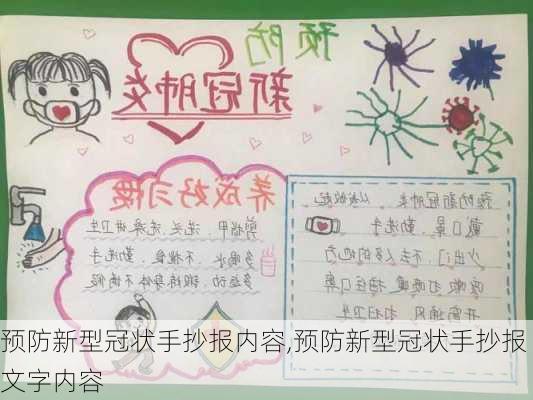 预防
新冠肺炎
养成好习惯
剪指甲 洗头洗澡讲卫生
多喝水 不挑食 勤洗手
多运动 锻炼身体
预防新冠肺炎 从我做起
戴口罩 勤洗手
少出门 不去人多的地方
咳嗽打喷嚏 捂住口鼻
开窗通风 打扫卫生
预防新型冠状手抄报内容,预防新型冠状手抄报
文字内容